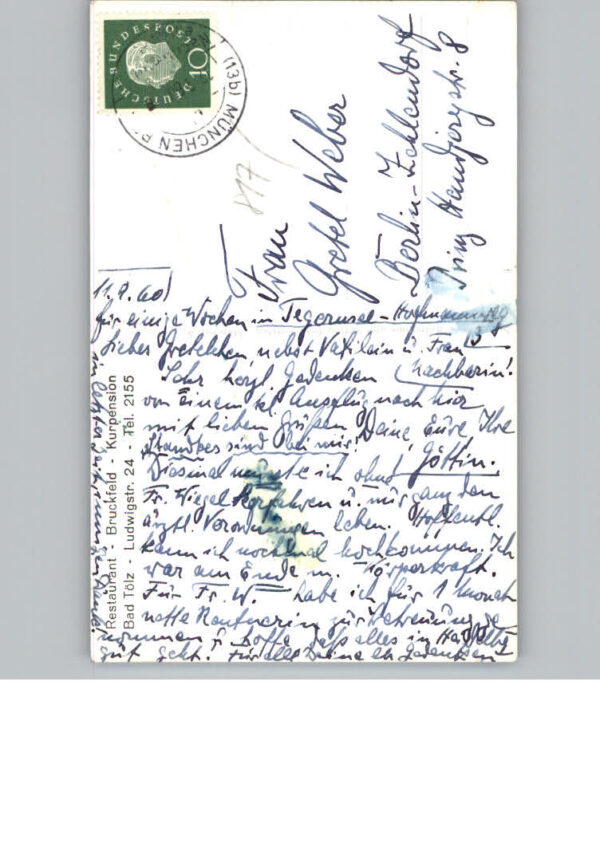 DEUTSCHE BUNDESPOST
10
(13b) MÜNCHEN
817
Frau
Gretel Weber
Berlin-Zehlendorf
Prinz Handjerystr. 8
11.9.60
für einige Wochen in Tegernsee - Hoffmannweg
3
Lieber Gretelchen, nebst Vatilein u. Frau
Nachbarin!
Sehr herzl. Gedenken
von Einem kl. Ausflug nach hier
mit lieben Grüßen Deine, Eure, Ihre
sind bei mir! Göttin.
Diesmal musste ich ohne
Fr. Wiegel fahren u. mir ganz den
ärztl. Verordnungen leben. Hoffentl.
kann ich nochmal hochkommen. Ich
war am Ende m. Körperkraft.
Für Fr. W. habe ich für 1 Monat
nette Rentnerin zur Betreuung ge
nommen u. hoffe dass alles in
gut geht! Für alle Deine lb. Gedenken
Restaurant - Bruckfeld - Kurpension
Bad Tölz - Ludwigstr. 24 - Tel. 2155